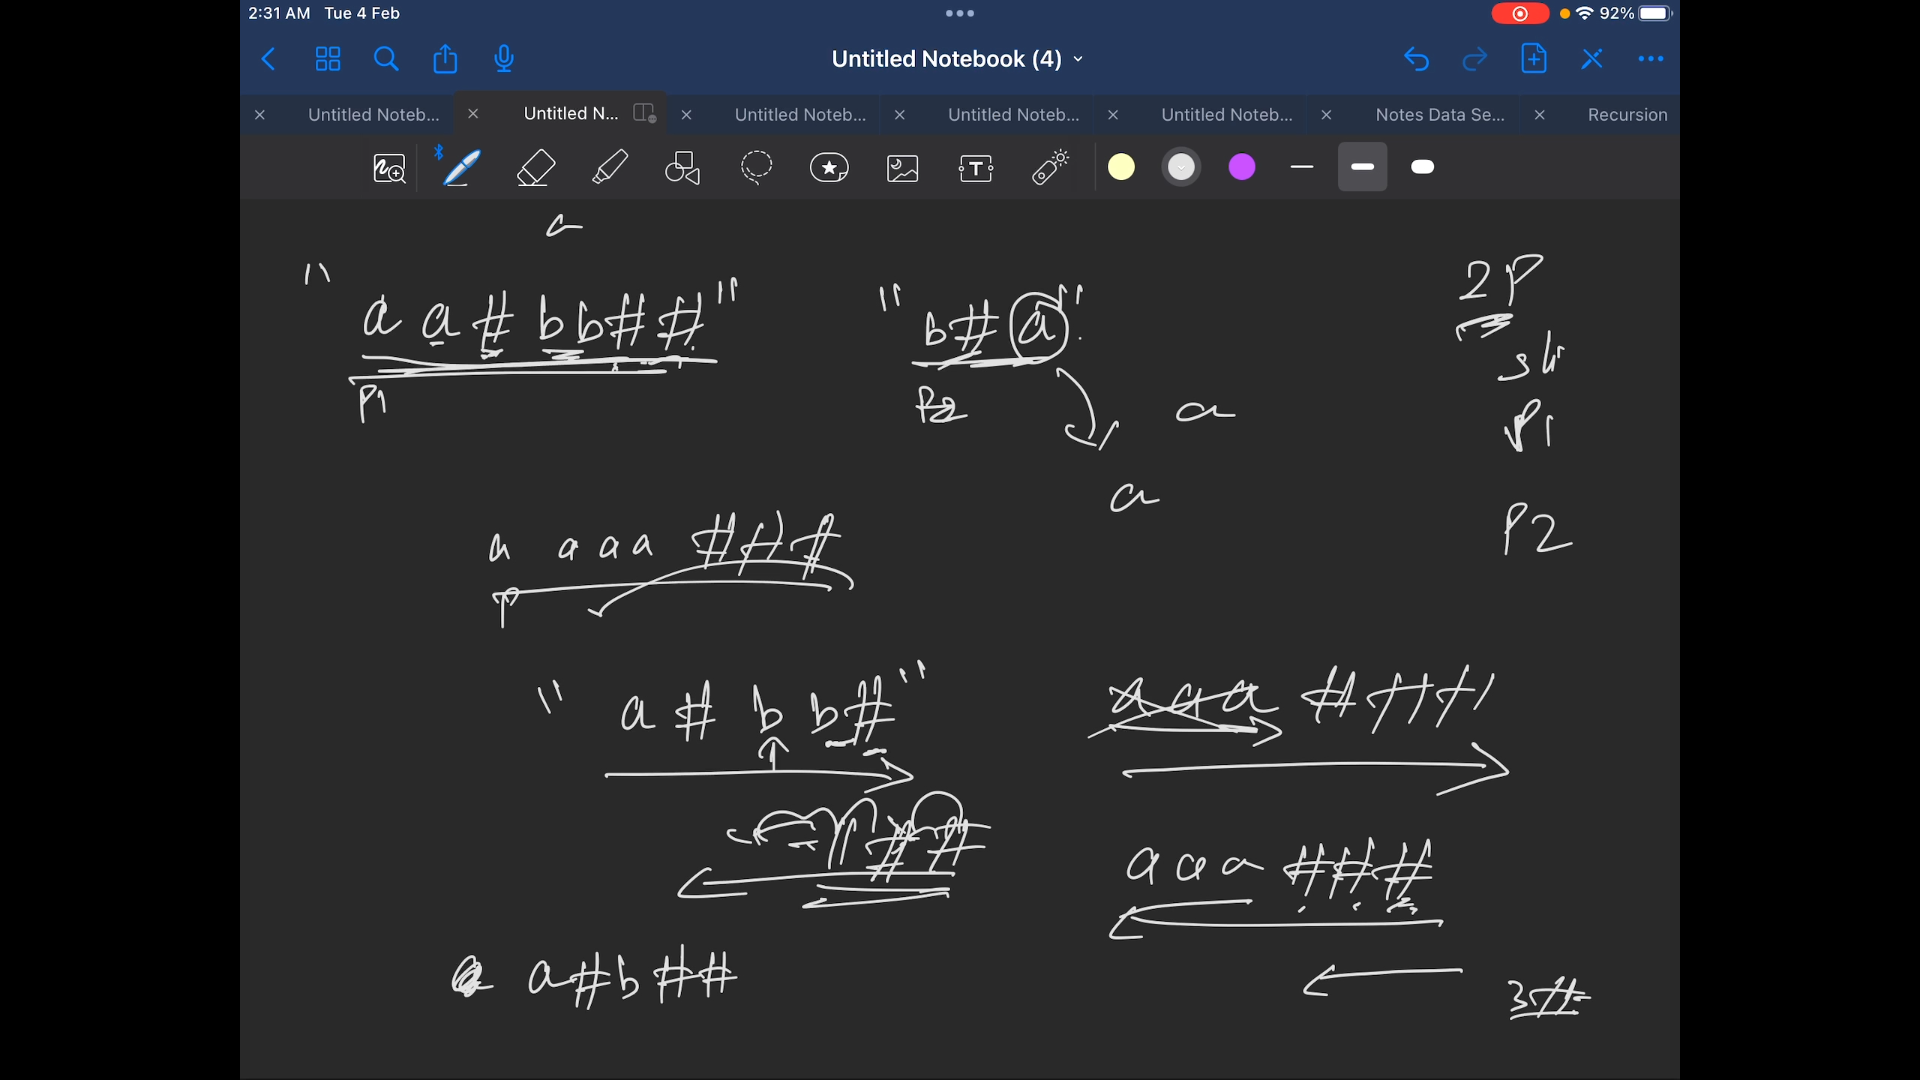 2:31 AM Tue 4 Feb
92%
Untitled Notebook (4)
Untitled Noteb...
Untitled N...
Untitled Noteb...
Untitled Noteb...
Untitled Noteb...
Notes Data Se...
Recursion
T
a
"aa#bb##"
"b#a"
2P
P1
P2
a
P1
a
P2
a aaa ###
P
"a#bb#"
aaa ###
##
aaa ###
a#b##
3#